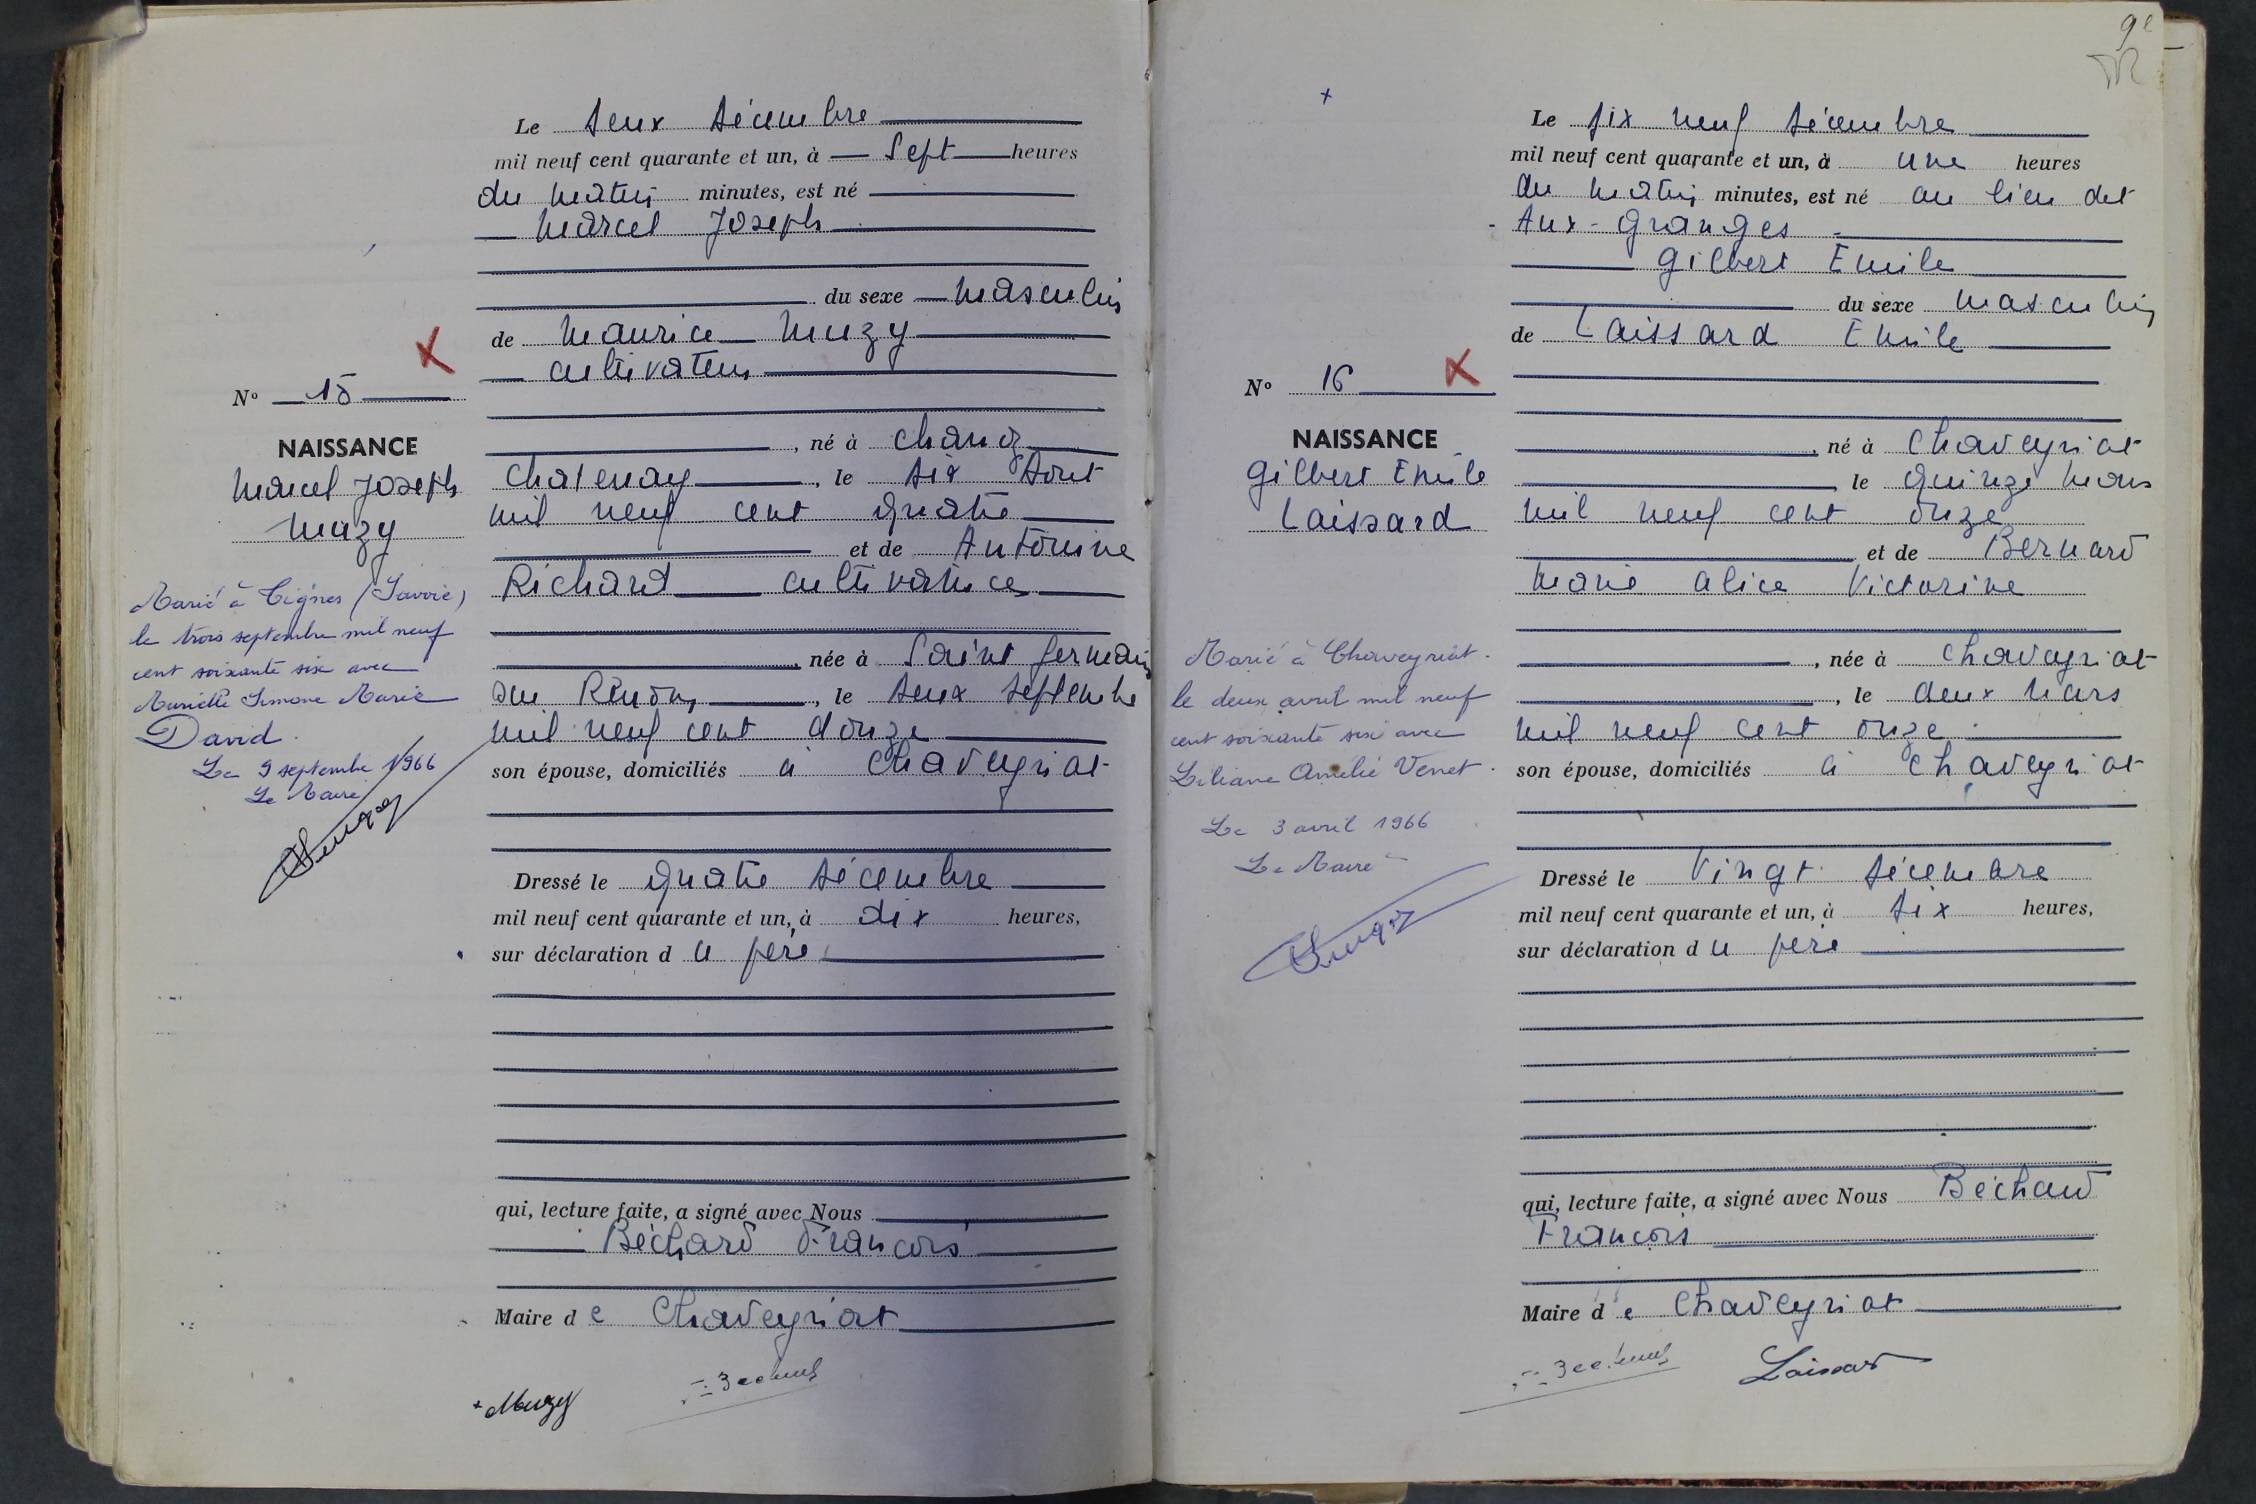 Le deux décembre
mil neuf cent quarante et un, à sept heures
du matin minutes, est né
Marcel Joseph
du sexe masculin
de Maurice Muzy
cultivateur
, né à Chanoz
Chatenay, le dix Aout
mil neuf cent quatre
et de Antonine
Richard cultivatrice
, née à Saint Germain
sur Renon, le deux septembre
mil neuf cent douze
son épouse, domiciliés à Chaveyriat
Dressé le quatre décembre
mil neuf cent quarante et un, à dix heures,
sur déclaration du père
qui, lecture faite, a signé avec Nous
Béchard François
Maire de Chaveyriat
Muzy
N° 15
NAISSANCE
Marcel Joseph
Muzy
Marié à Tignes (Savoie)
le trois septembre mil neuf
cent soixante six avec
Murielle Simone Marie
David.
Le 9 septembre 1966
Le Maire
9e
Le dix neuf décembre
mil neuf cent quarante et un, à une heures
du matin minutes, est né au lieu dit
Aux-Granges
Gilbert Emile
du sexe masculin
de Laissard Emile
, né à Chaveyriat
le quinze mars
mil neuf cent onze
et de Bernard
Marie Alice Victorine
, née à Chaveyriat
, le deux Mars
mil neuf cent onze
son épouse, domiciliés à Chaveyriat
Dressé le Vingt décembre
mil neuf cent quarante et un, à dix heures,
sur déclaration du père
qui, lecture faite, a signé avec Nous Béchard
François
Maire de Chaveyriat
Laissard
N° 16
NAISSANCE
Gilbert Emile
Laissard
Marié à Chaveyriat.
le deux avril mil neuf
cent soixante six avec
Liliane Amélie Venet.
Le 3 avril 1966
Le Maire